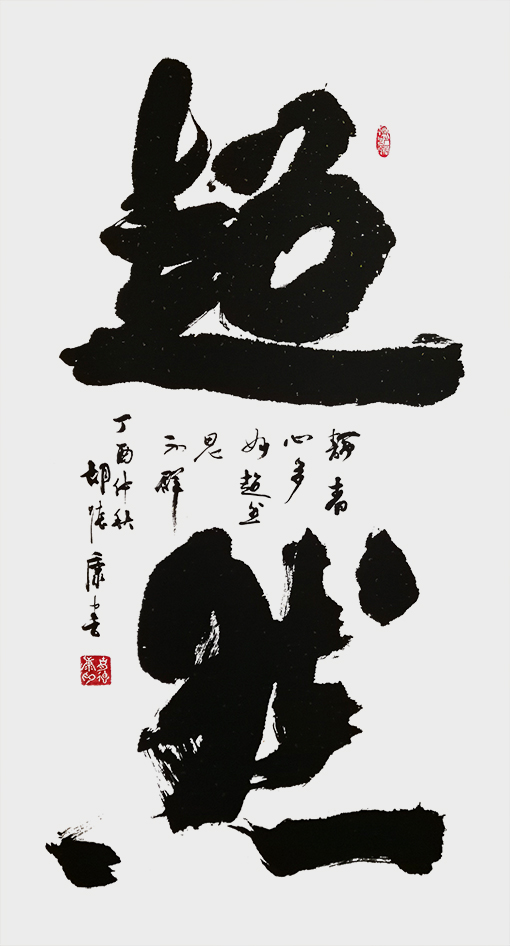 超然
静者
心多
妙超然
思
不群
丁酉仲秋
胡康书